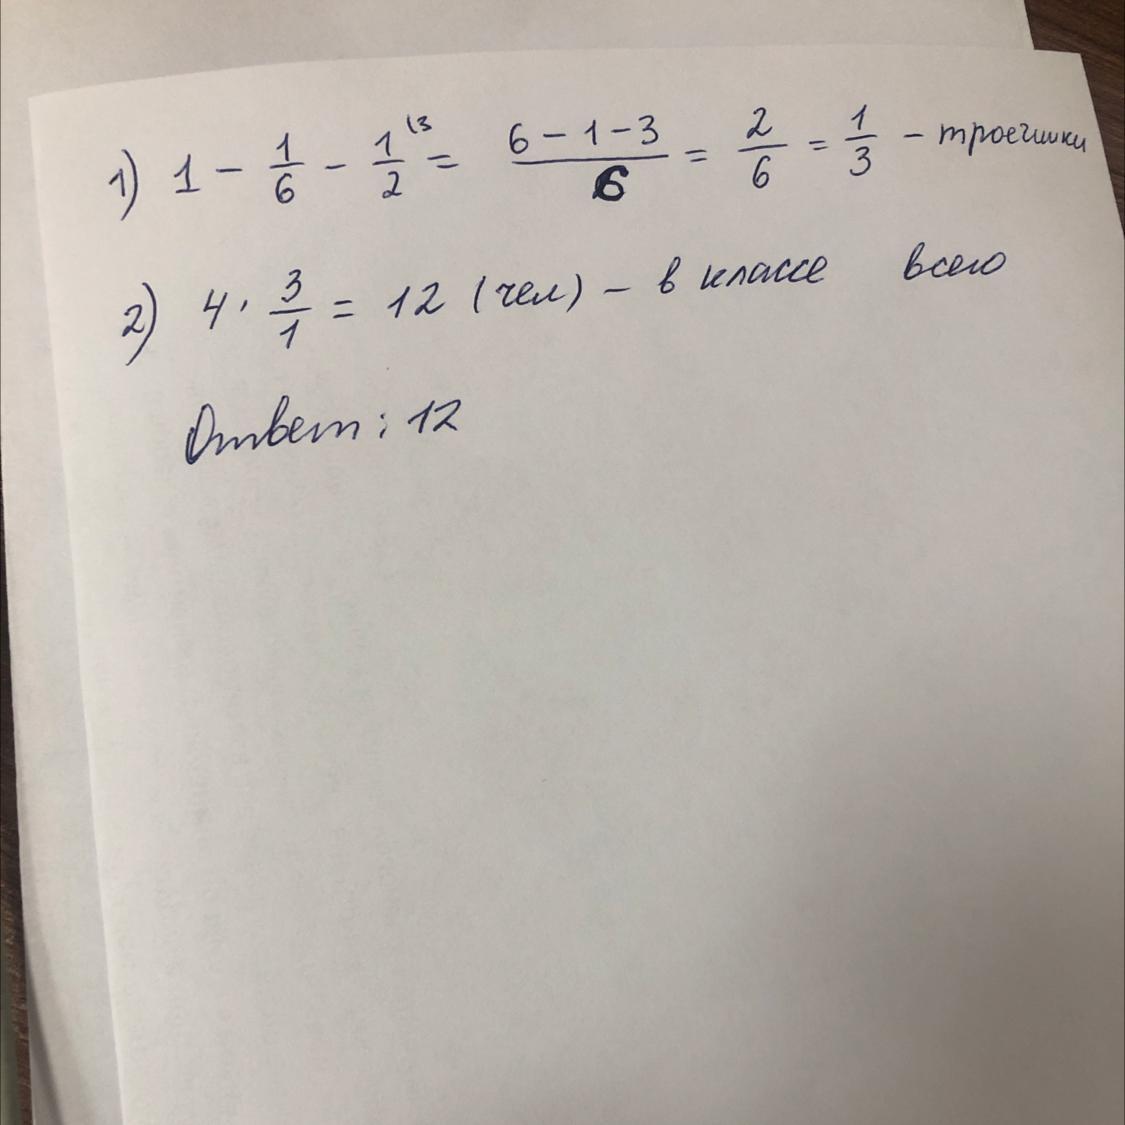 1) 1 - 1/6 - 1/2 \3 = (6 - 1 - 3)/6 = 2/6 = 1/3 - троечники
2) 4 · 3/1 = 12 (чел) - в классе всего
Ответ: 12